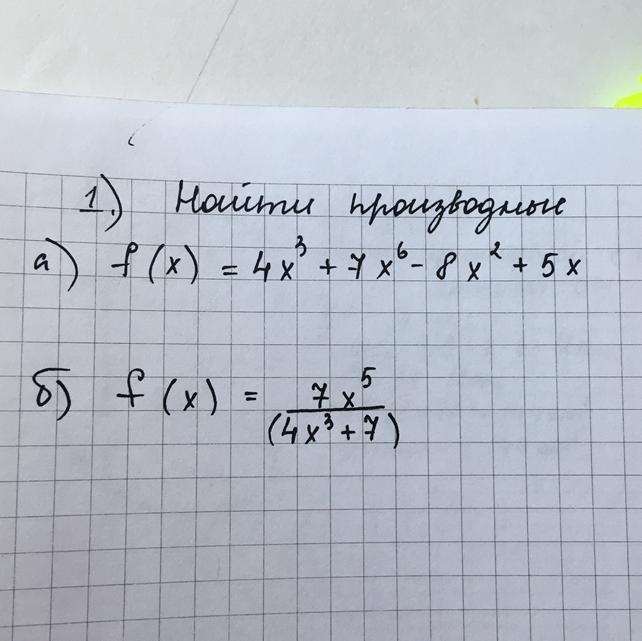 1.) Найти производные
а) f(x) = 4x³ + 7x⁶ - 8x² + 5x
б) f(x) = 7x⁵
(4x³ + 7)